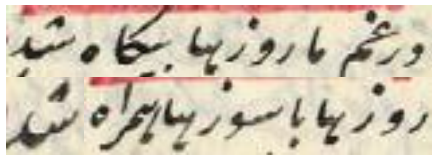 در غم ما روزها بیگاه شد
روزها با سوزها همراه شد